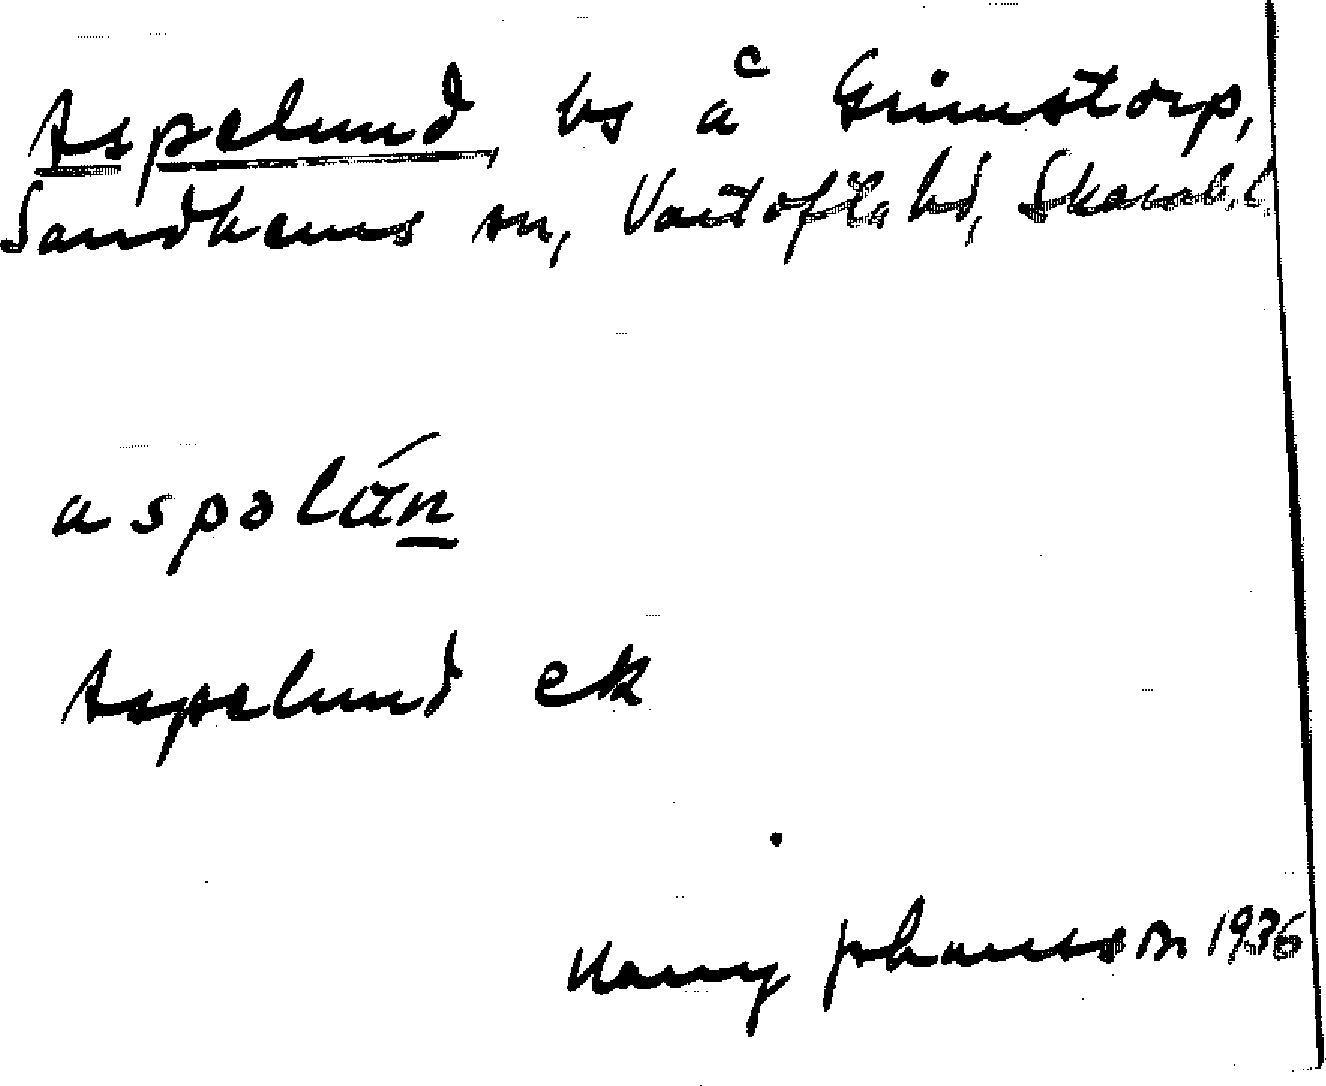 Aspelund, bs å Grimstorp,
Sandhems sn, Vartofta hd, Skarab. l.
aspəlún
Aspelund ek
Harry Johansson 1936